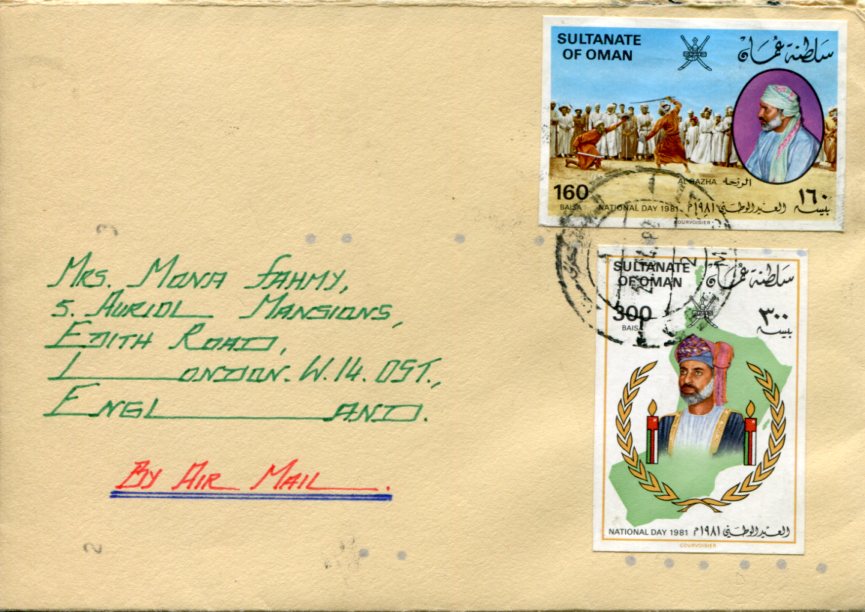 SULTANATE
OF OMAN
سلطنة عُمان
AL RAZHA الرزحة
160
BAISA
١٦٠
بيسة
NATIONAL DAY 1981 العيد الوطني ١٩٨١م
COURVOISIER
SULTANATE
OF OMAN
سلطنة عُمان
300
BAISA
٣٠٠
بيسة
NATIONAL DAY 1981 العيد الوطني ١٩٨١م
COURVOISIER
MRS. MONA FAHMY,
5. AURIOL MANSIONS,
EDITH ROAD,
LONDON. W.14. OST.,
ENGLAND.
BY AIR MAIL.